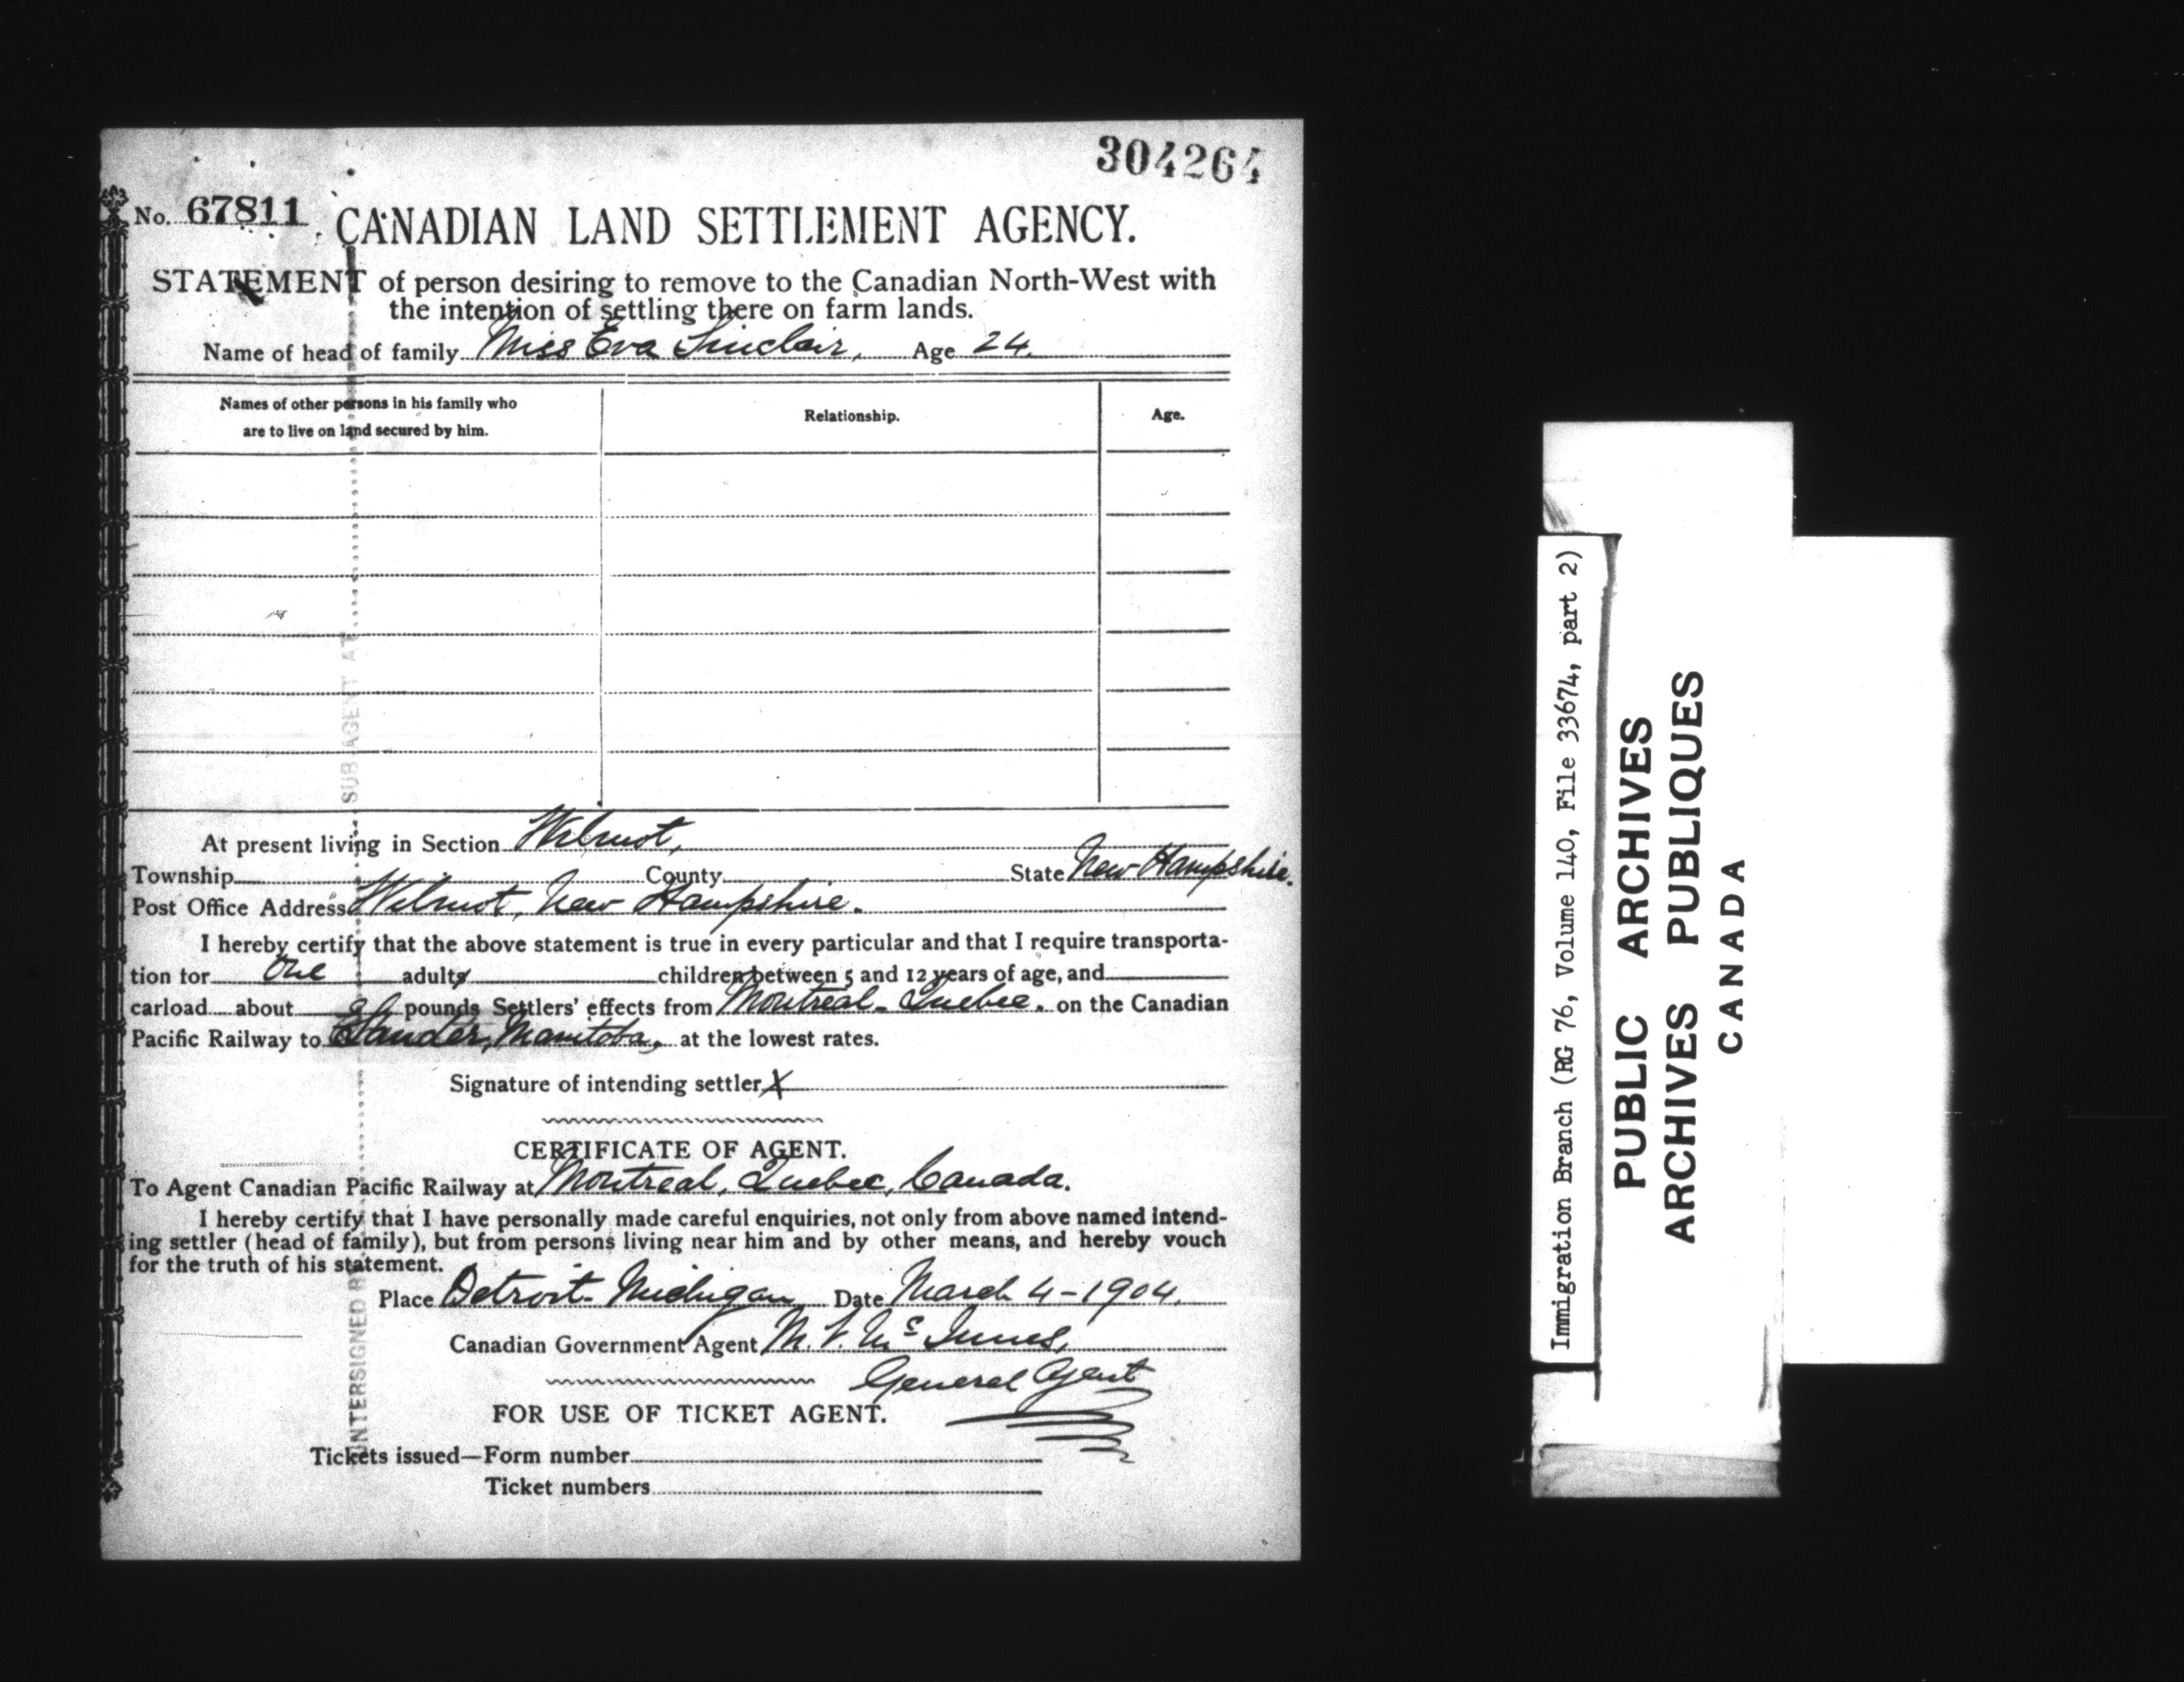 304264
No. 67811
CANADIAN LAND SETTLEMENT AGENCY.
STATEMENT of person desiring to remove to the Canadian North-West with
the intention of settling there on farm lands.
Name of head of family Miss Eva Sinclair, Age 24.
Names of other persons in his family who
are to live on land secured by him.
Relationship.
Age.
At present living in Section Wilmot,
Township County State New Hampshire.
Post Office Address Wilmot, New Hampshire.
I hereby certify that the above statement is true in every particular and that I require transporta-
tion for One adults children between 5 and 12 years of age, and
carload about pounds Settlers' effects from Montreal - Quebec. on the Canadian
Pacific Railway to Manitoba, at the lowest rates.
Signature of intending settler X
CERTIFICATE OF AGENT.
To Agent Canadian Pacific Railway at Montreal, Quebec, Canada.
I hereby certify that I have personally made careful enquiries, not only from above named intend-
ing settler (head of family), but from persons living near him and by other means, and hereby vouch
for the truth of his statement.
Place Detroit - Michigan Date March 4 - 1904.
Canadian Government Agent M. V. McInnes,
General Agent
FOR USE OF TICKET AGENT.
Tickets issued—Form number
Ticket numbers
SUB AGENT AT
UNTERSIGNED BY
Immigration Branch (RG 76, Volume 140, File 33674, part 2)
PUBLIC ARCHIVES
ARCHIVES PUBLIQUES
CANADA